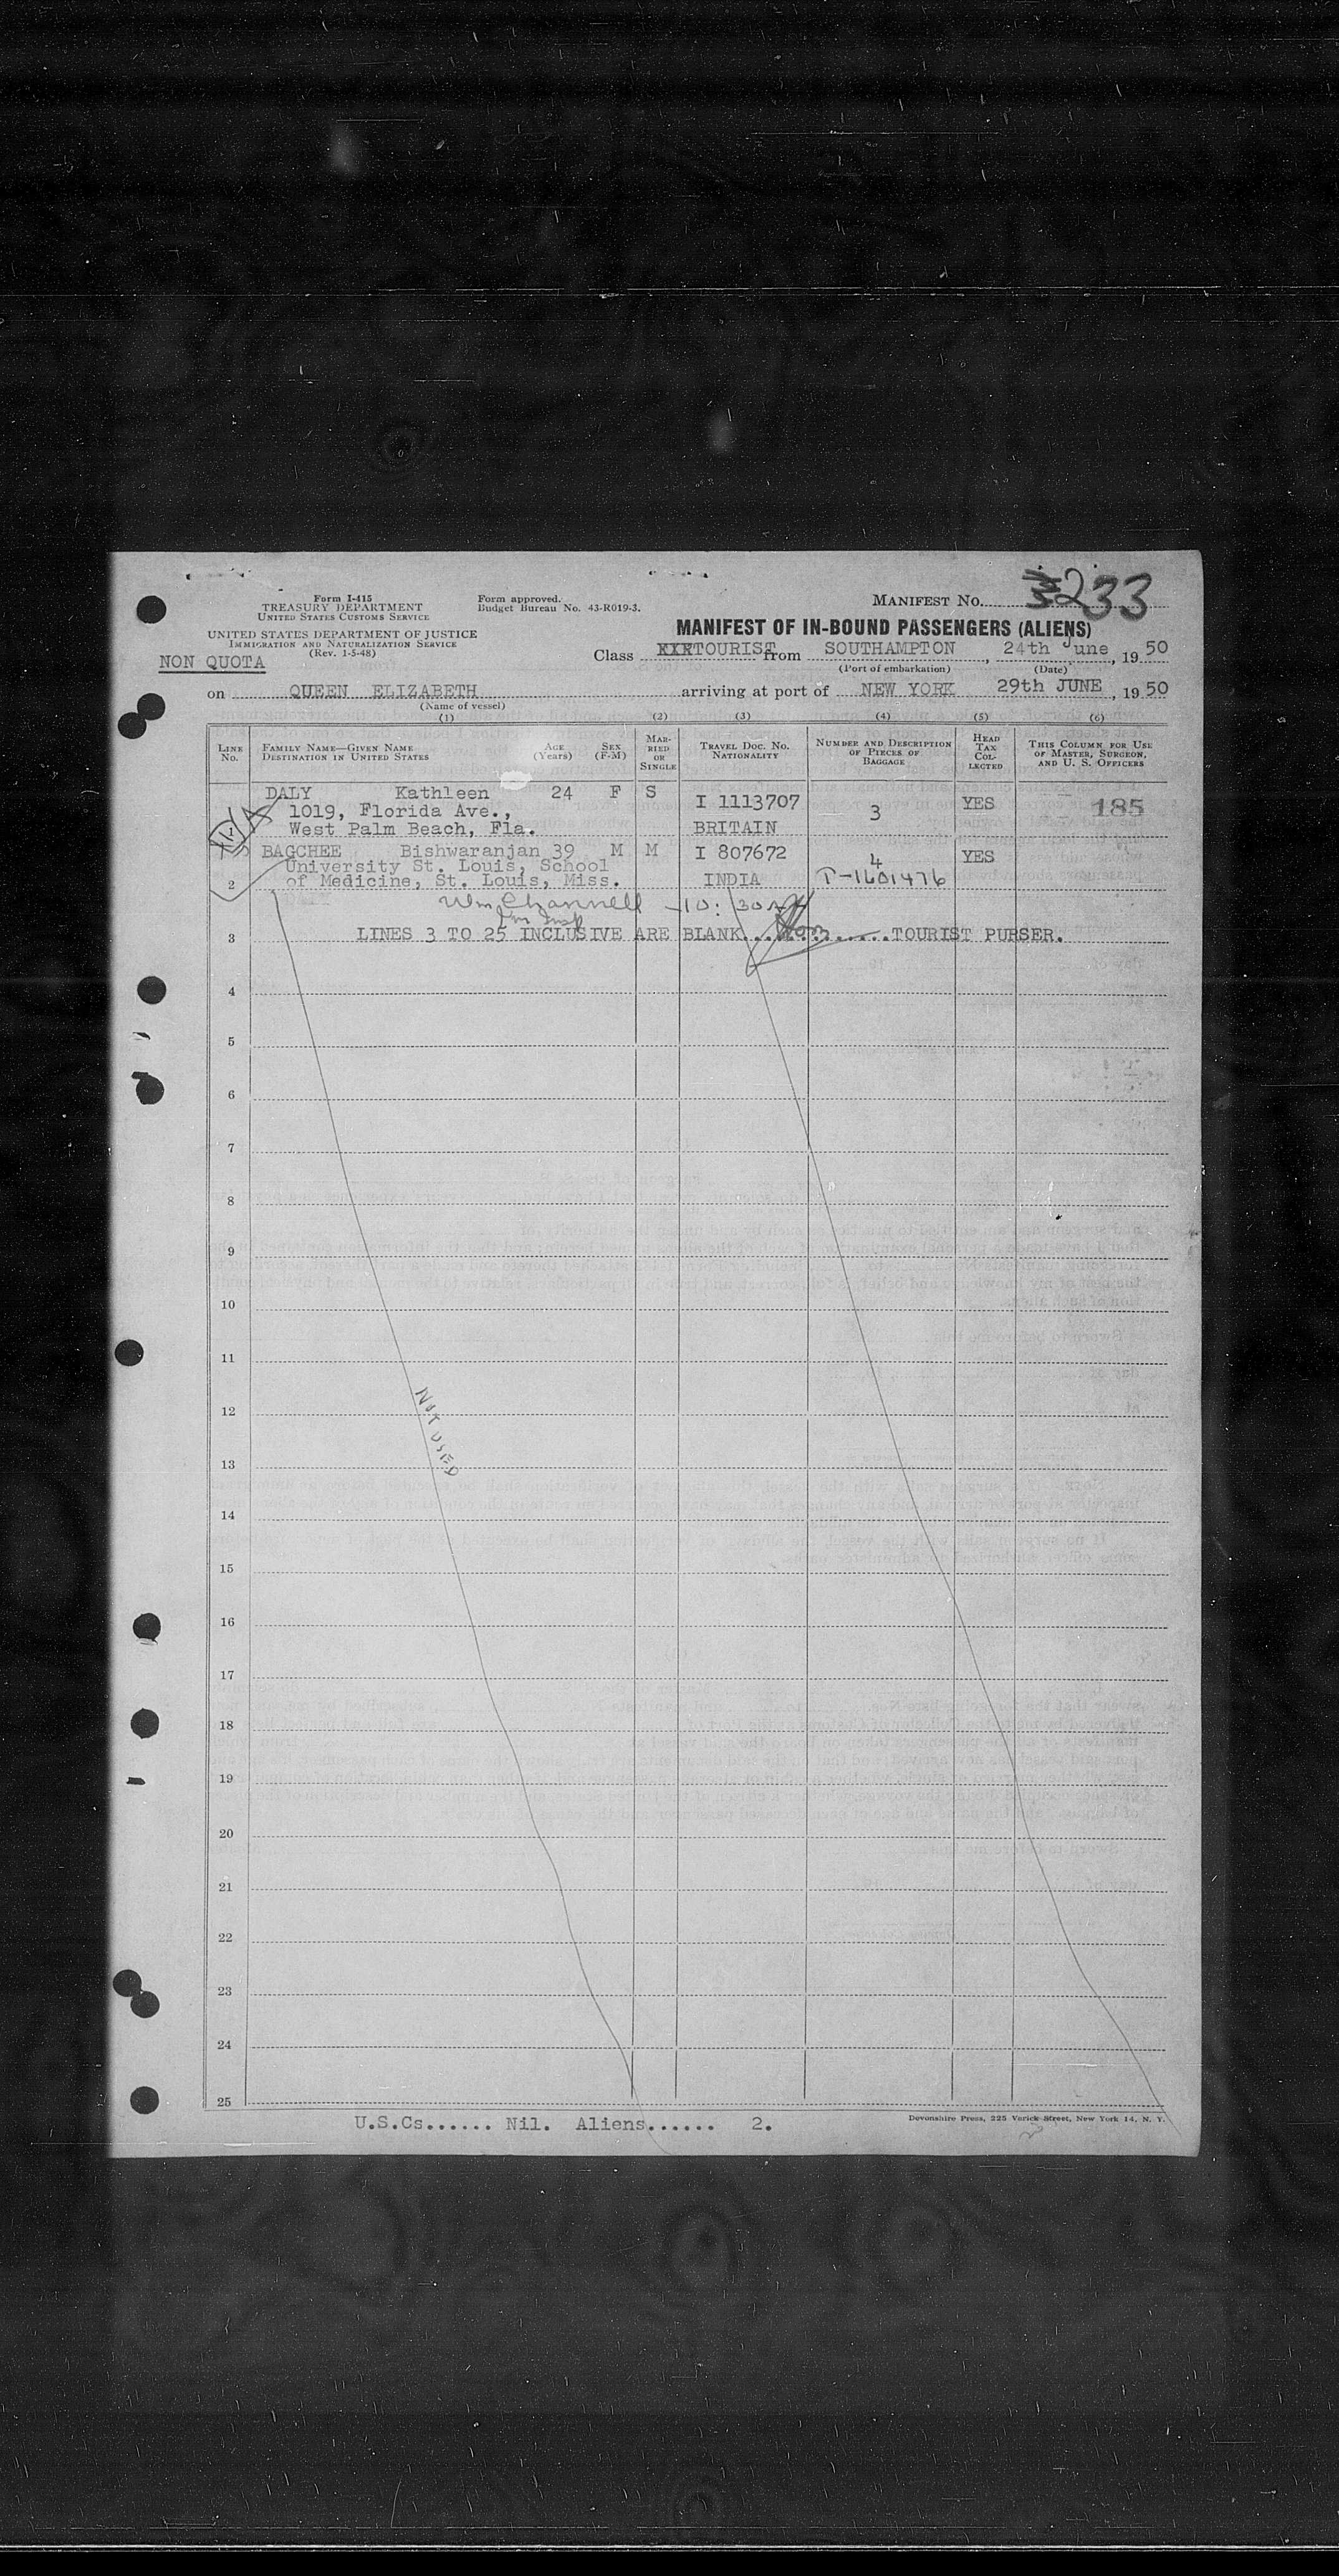 Form I-415
TREASURY DEPARTMENT
UNITED STATES CUSTOMS SERVICE
UNITED STATES DEPARTMENT OF JUSTICE
IMMIGRATION AND NATURALIZATION SERVICE
(Rev. 1-5-48)
NON QUOTA
Form approved.
Budget Bureau No. 43-R019-3.
MANIFEST NO. 233
MANIFEST OF IN-BOUND PASSENGERS (ALIENS)
Class TOURIST from SOUTHAMPTON, 24th June, 1950
(Port of embarkation) (Date)
on QUEEN ELIZABETH arriving at port of NEW YORK 29th JUNE, 1950
(Name of vessel)
(1) (2) (3) (4) (5) (6)
LINE No. FAMILY NAME—GIVEN NAME DESTINATION IN UNITED STATES AGE (Years) SEX (F-M) MARRIED OR SINGLE TRAVEL DOC. NO. NATIONALITY NUMBER AND DESCRIPTION OF PIECES OF BAGGAGE HEAD TAX COLLECTED THIS COLUMN FOR USE OF MASTER, SURGEON, AND U. S. OFFICERS
DALY Kathleen 24 F S I 1113707 3 YES 185
1019, Florida Ave.,
1 West Palm Beach, Fla. BRITAIN
BAGCHEE Bishwaranjan 39 M M I 807672 4 YES
University St. Louis, School
2 of Medicine, St. Louis, Miss. INDIA P-1601476
Wm Channell 10:30
Im Insp
3 LINES 3 TO 25 INCLUSIVE ARE BLANK..............TOURIST PURSER.
4
5
6
7
8
9
10
11
12
NOT USED
13
14
15
16
17
18
19
20
21
22
23
24
25
U.S.Cs...... Nil. Aliens...... 2.
Devonshire Press, 225 Varick Street, New York 14, N. Y.